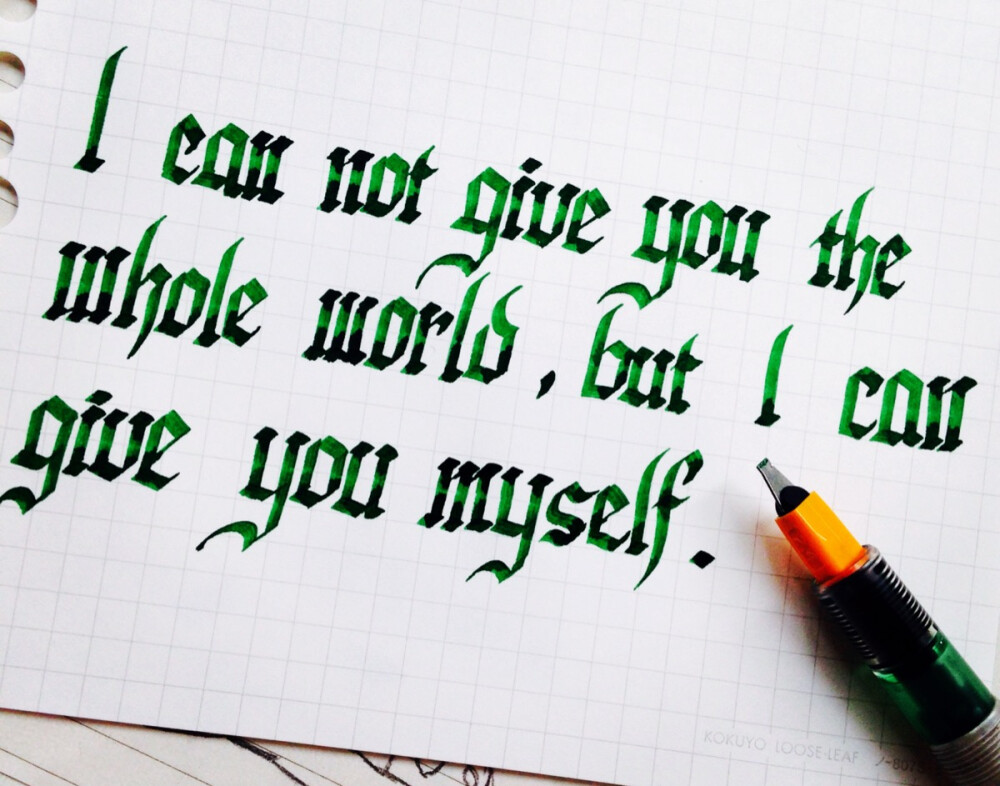 I can not give you the
whole world, but I can
give you myself.
KOKUYO LOOSE-LEAF